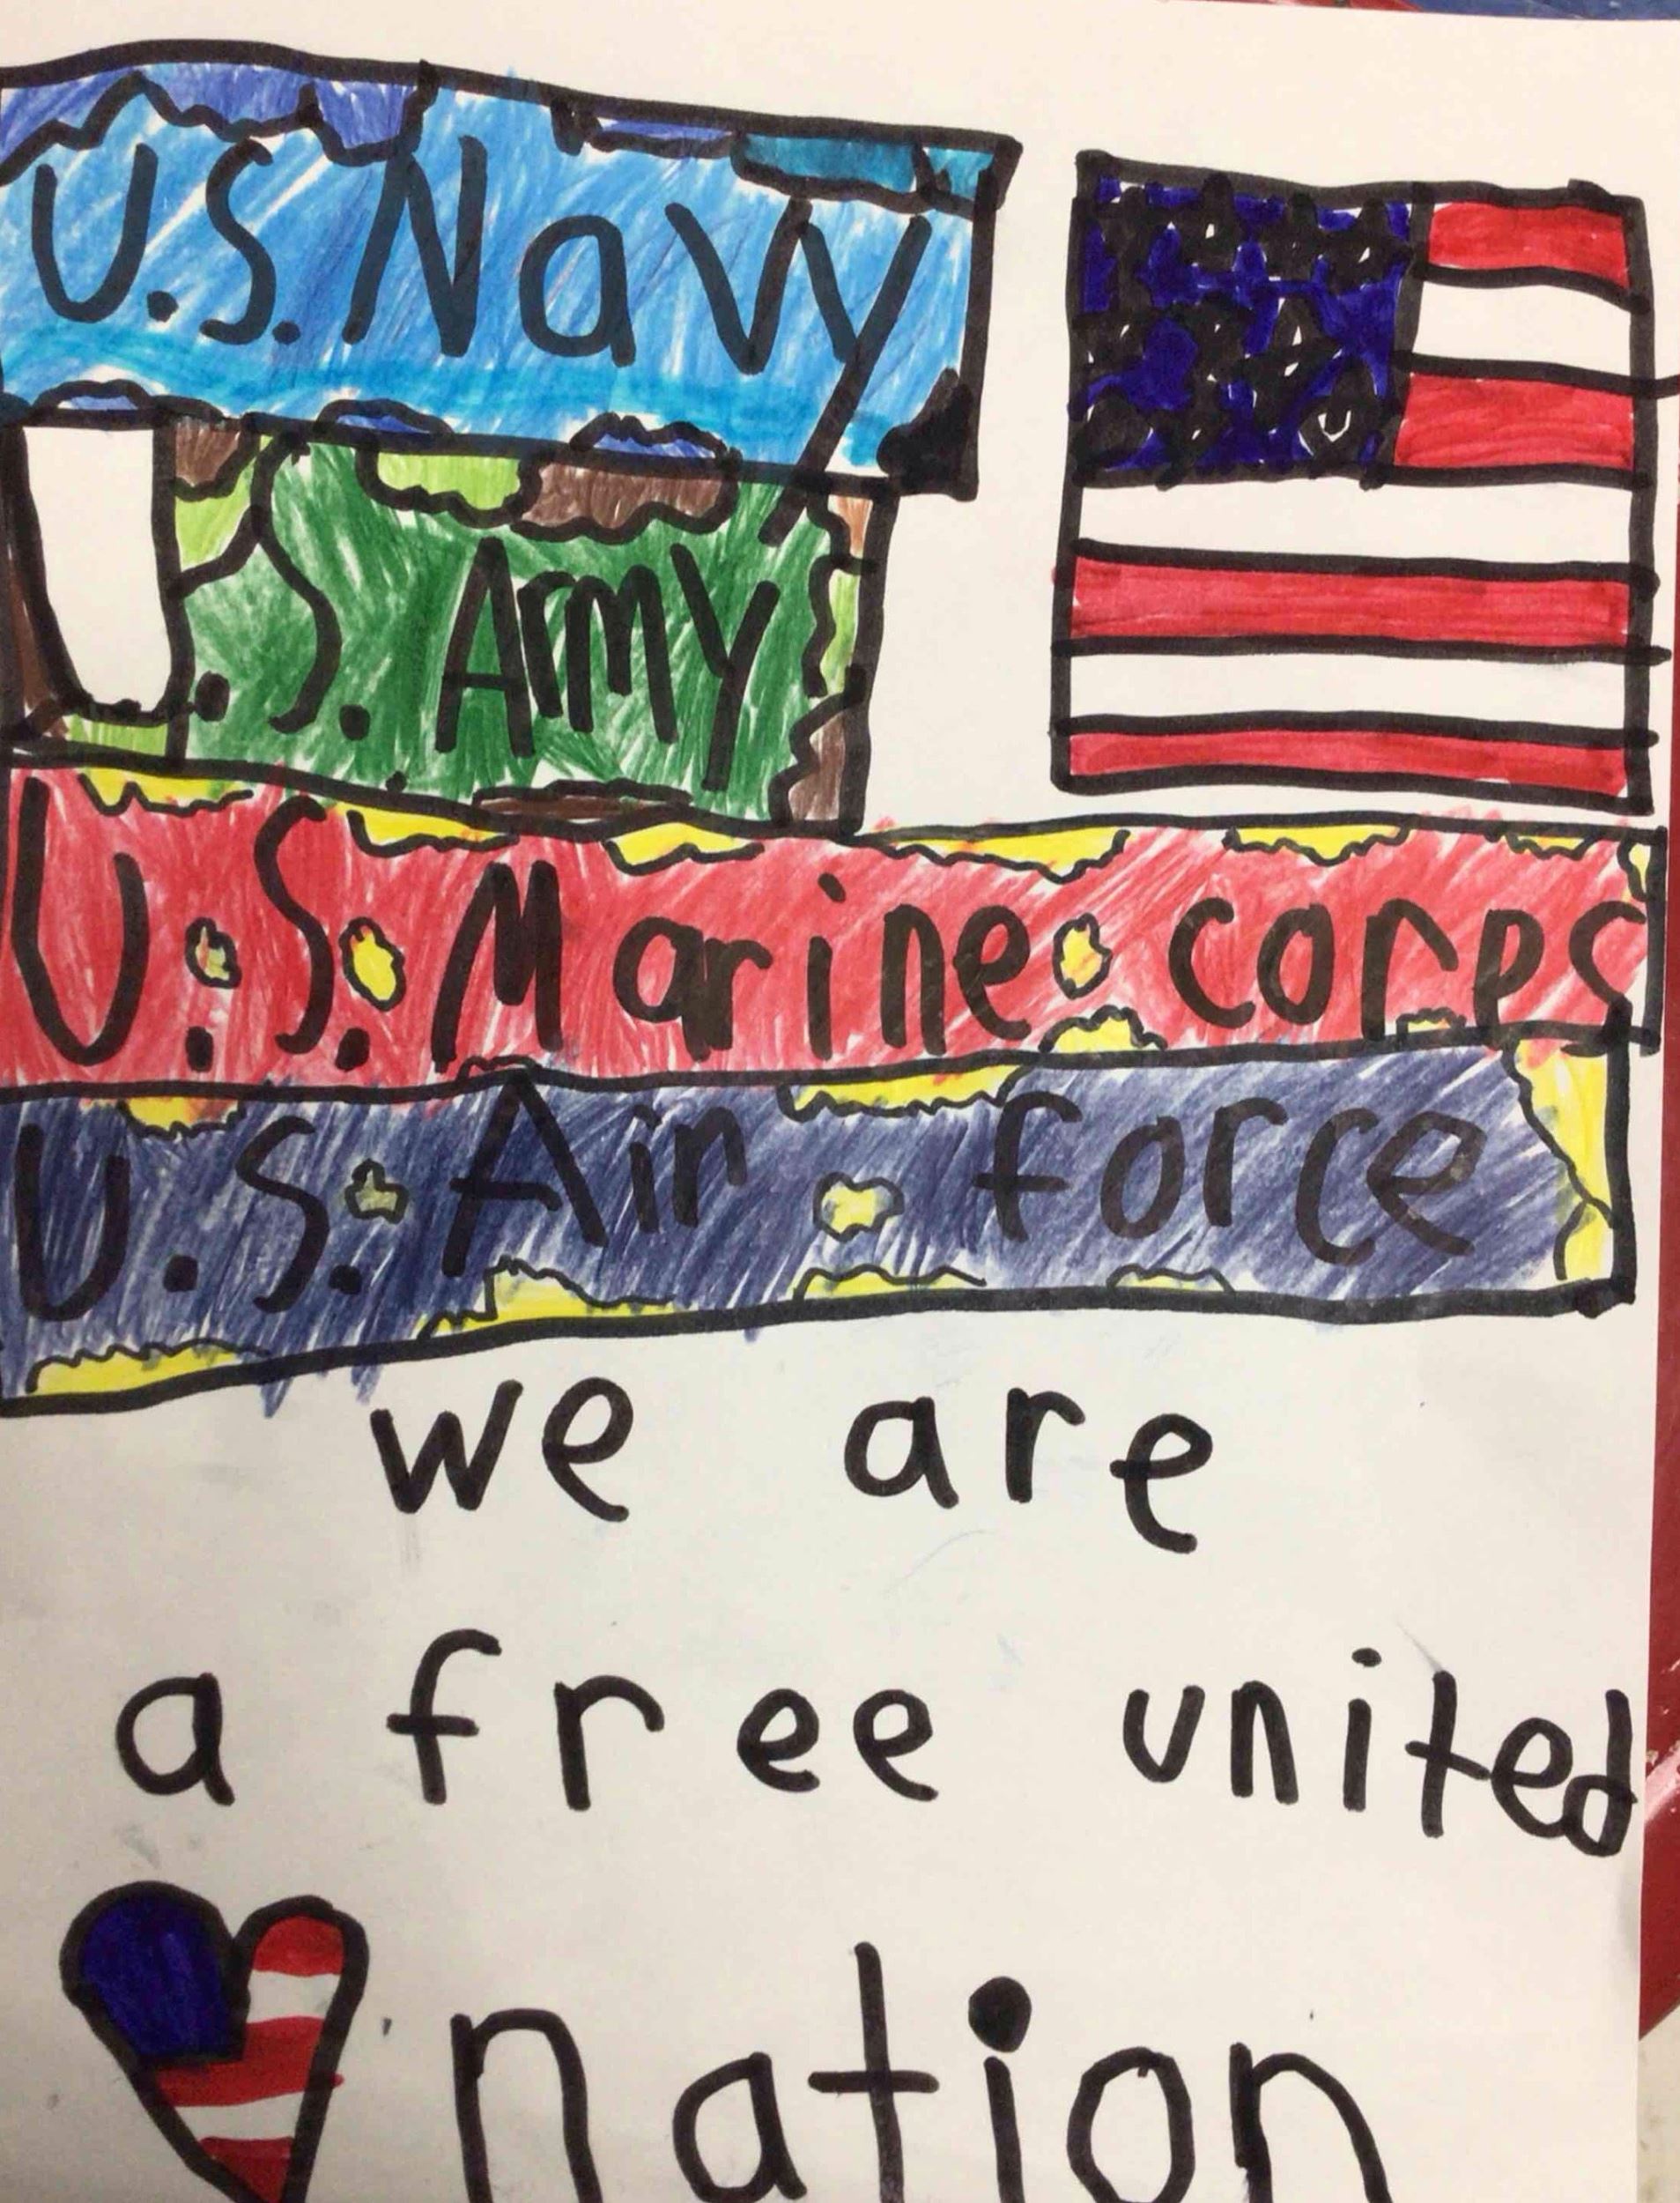 U.S. Navy
U.S. Army
U.S. Marine corps
U.S. Air force
we are
a free united
nation